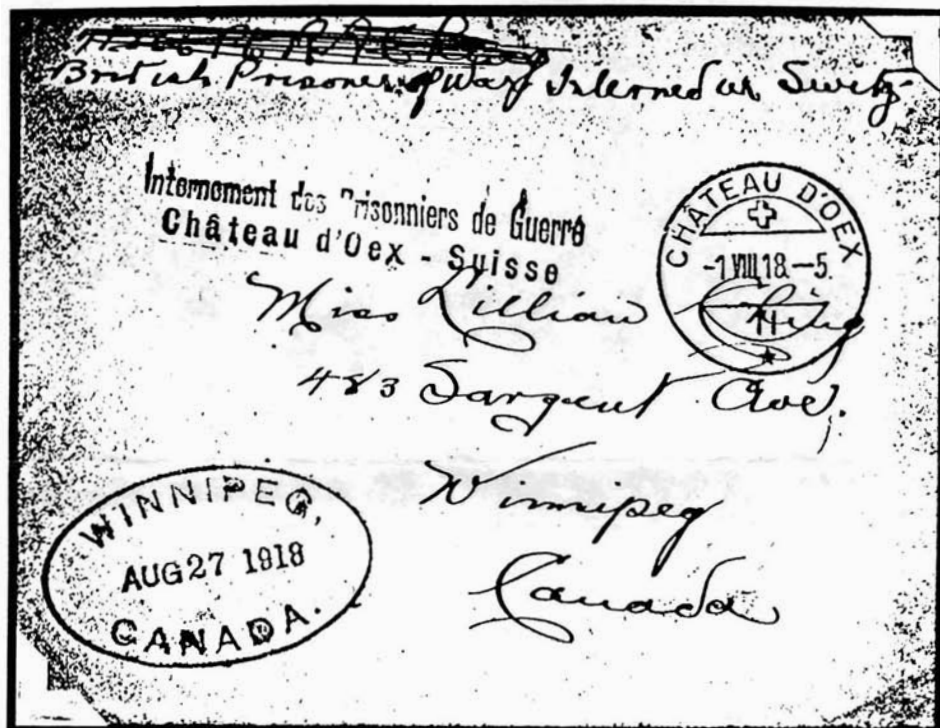 British Prisoner of War Interned in Switz.
Internement des Prisonniers de Guerre
Château d'Oex - Suisse
CHÂTEAU D'OEX
-1 VIII 18.-5.
Miss Lillian
483 Sargent Ave.
Winnipeg
Canada
WINNIPEG,
AUG 27 1918
CANADA.